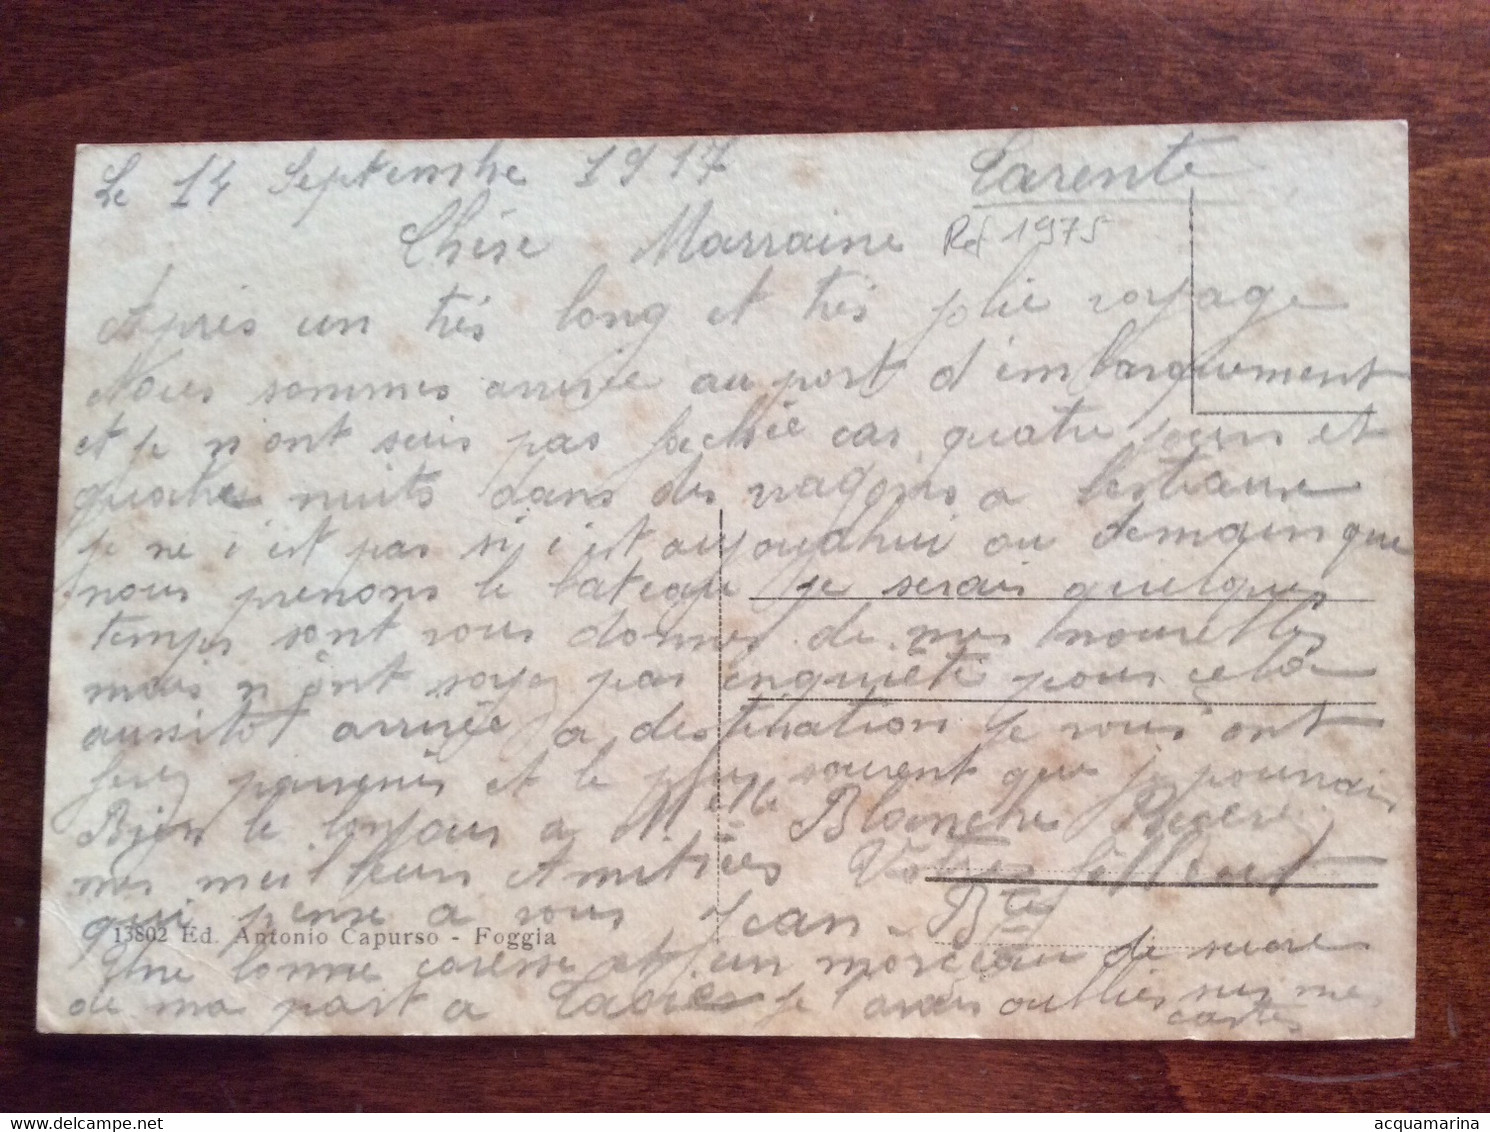 Le 14 Septembre 1917 Tarente
Chère Marraine Ref 1975
Après un très long et très jolie voyage
Nous sommes arrivée au port d'embarquement
et je n'ont suis pas fachée car quatre jours et
quatres nuits dans des wagons a bestiaux
je ne c'est pas si c'est aujourdhui ou demain que
nous prenons le bateau je serais quelques
temps sont vous donner de mes nouvelles
mais n'ont soyez pas inquiète pour celà
aussitôt arrivée a destination je vous ont
ferez parvenir et le plus souvent que je pourrais
Bien le bonjour a Melle Blanche
mes meilleurs Amitiées Votre filleul
qui pense a vous Jean-Bte
13802 Ed. Antonio Capurso - Foggia
Une bonne caresse et un morceau de sucre
de ma part a je avais oubliés sur mes
cartes
acquamarina